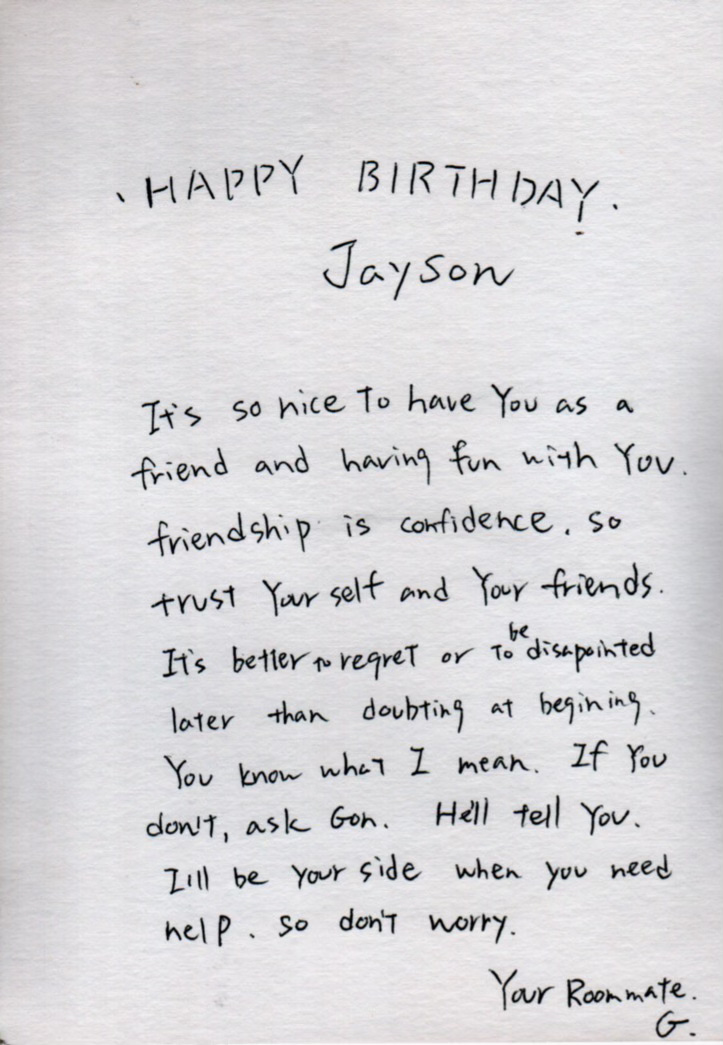 HAPPY BIRTHDAY.
Jayson
It's so nice To have You as a
friend and having fun with You.
friendship is confidence. so
trust Your self and Your friends.
It's better to regret or To be disapointed
later than doubting at begining.
You know what I mean. If You
don't, ask Gon. He'll tell You.
I'll be your side when you need
help. so don't worry.
Your Roommate.
G.